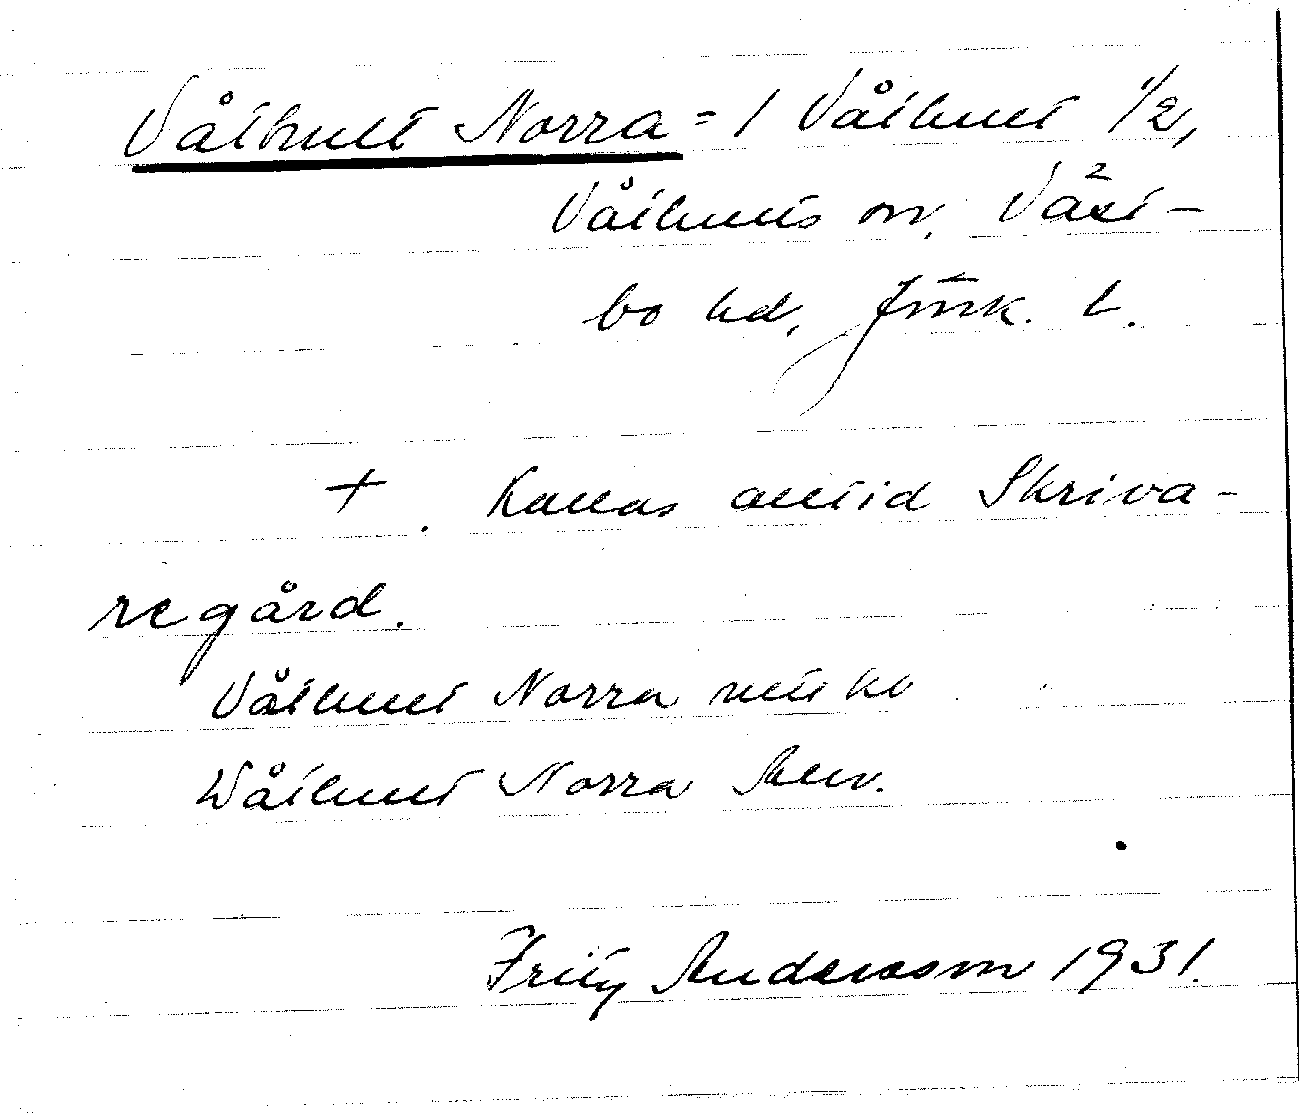 Våthult Norra = 1 Våthult 1/2,
Våthults sn, Väst-
bo hd, Jönk. l.
+. Kallas alltid Skriva-
regård.
Våthult Norra
Wåthult Norra
Fritz Andersson 1931.